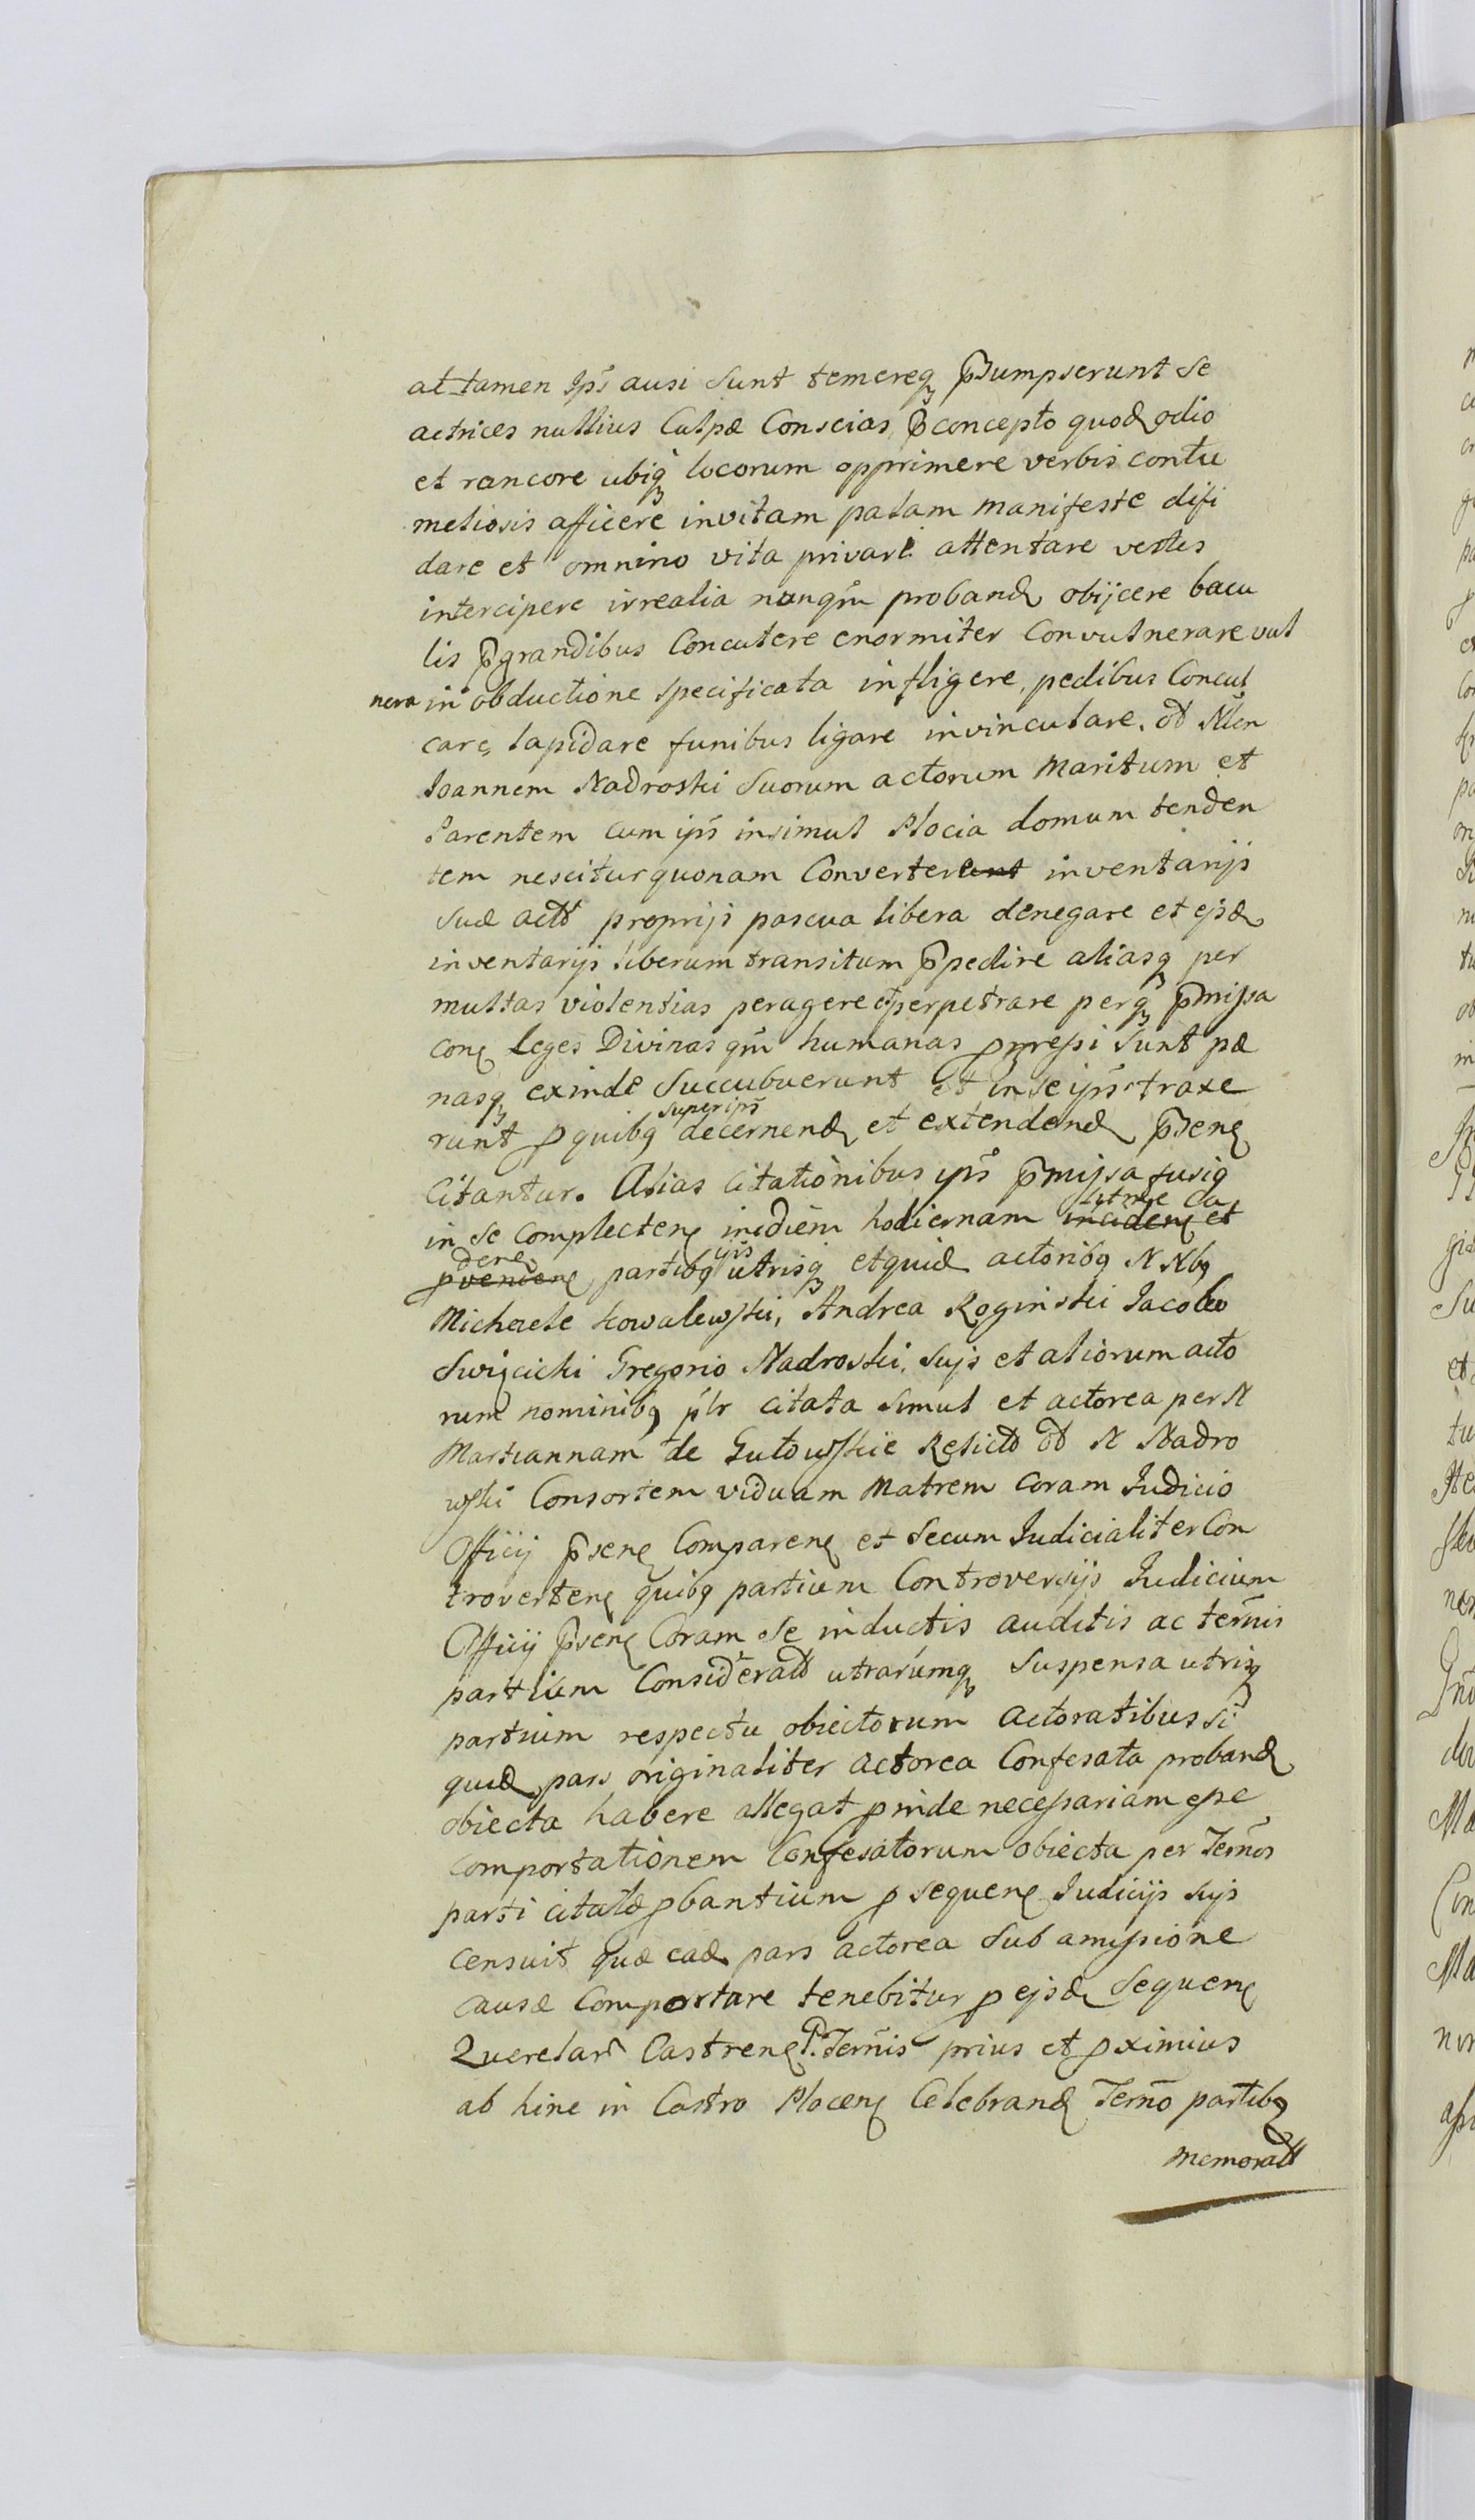 attamen Ips̃ ausi sunt temereq₃ p̃sumpserunt se
actrices nullius Culpæ Conscias p̃concepto quođ odio
et rancore ubiq₃ locorum opprimere verbis contu
meliosis afficere invitam palam manifeste difi
dare et omnino vita privare attentare vestes
intercipere irrealia nunqm̃ proband obijcere bacu
lis p̃grandibus Concutere enormiter Convulnerare vul
nera in obductione specificata infligere, pedibus Concul
care, lapidare funibus ligare invinculare. od
Ioannem Nadroski Suorum actorum Maritum et
Parentem cum ips̃ insimul Plocia domum tenden
tem nescitur quonam Converterunt inventarijs
suæ actt proprijs pascua libera denegare et ejsd
inventarijs liberum transitum p̃pedire aliasq₃ per
multas violentias peragere et perpetrare perq₃ p̃missa
con leges Divinas qm̃ humanas sunt pæ
nasq₃ exinde Succubuerunt et in se ips̃ traxe
runt p quibq super ips̃ decernend et extendend p̃sen
Citantur. Alias Citationibus ips̃ p̃missa fusiq
in se complecten in diem hodiernam inciden et
partibq ijs utrisq₃ et quid actoribq N Nbq
Michaele Kowalewski, Andrea Roginski Jacobo
Swięcicki Gregorio Nadroski, sujs et aliorum acto
rum nominibq citata simul et actorea per N
Mariannam de Gutowskie Relictt od N Nadro
wski Consortem viduam Matrem coram Iudicio
Officij p̃sen Comparen et secum Iudicialiter Con
troverten quibq partium Controversijs Iudicium
Officij p̃sen Coram se inductis auditis ac term̃is
partium Consideratt utrarumq₃ Suspensa utriq
partium respectu obiectorum actoratibus si
quid pars originaliter actorea Confesata proband
obiecta habere allegat pinde necessariam esse
comportationem Confesatorum obiecta per Term̃os
parti citatæ pbantium p sequen Iudicijs sujs
censuit quæ ead pars actorea sub amissione
causæ Comportare tenebitur p ejsd Sequen
Querelarũ Castren P. Term̃is prius et pximius
ab hinc in Castro Plocen Celebrand Term̃o partibq
memoratt